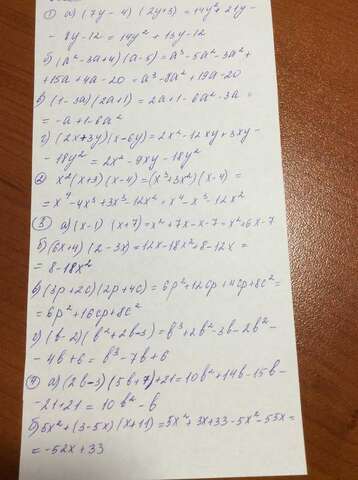 ① а) (7y - 4) (2y+3) = 14y² + 21y -
- 8y - 12 = 14y² + 13y - 12
б) (a² - 3a + 4) (a - 5) = a³ - 5a² - 3a² +
+ 15a + 4a - 20 = a³ - 8a² + 19a - 20
в) (1 - 3a) (2a + 1) = 2a + 1 - 6a² - 3a =
= -a + 1 - 6a²
г) (2x + 3y) (x - 6y) = 2x² - 12xy + 3xy -
- 18y² = 2x² - 9xy - 18y²
② x² (x + 3) (x - 4) = (x³ + 3x²) (x - 4) =
= x⁴ - 4x³ + 3x³ - 12x² = x⁴ - x³ - 12x²
③ а) (x - 1) (x + 7) = x² + 7x - x - 7 = x² + 6x - 7
б) (6x + 4) (2 - 3x) = 12x - 18x² + 8 - 12x =
= 8 - 18x²
в) (3p + 2c) (2p + 4c) = 6p² + 12cp + 4cp + 8c² =
= 6p² + 16cp + 8c²
г) (b - 2) (b² + 2b - 3) = b³ + 2b² - 3b - 2b² -
- 4b + 6 = b³ - 7b + 6
④ а) (2b - 3) (5b + 7) + 21 = 10b² + 14b - 15b -
- 21 + 21 = 10b² - b
б) 5x² + (3 - 5x) (x + 11) = 5x² + 3x + 33 - 5x² - 55x =
= -52x + 33